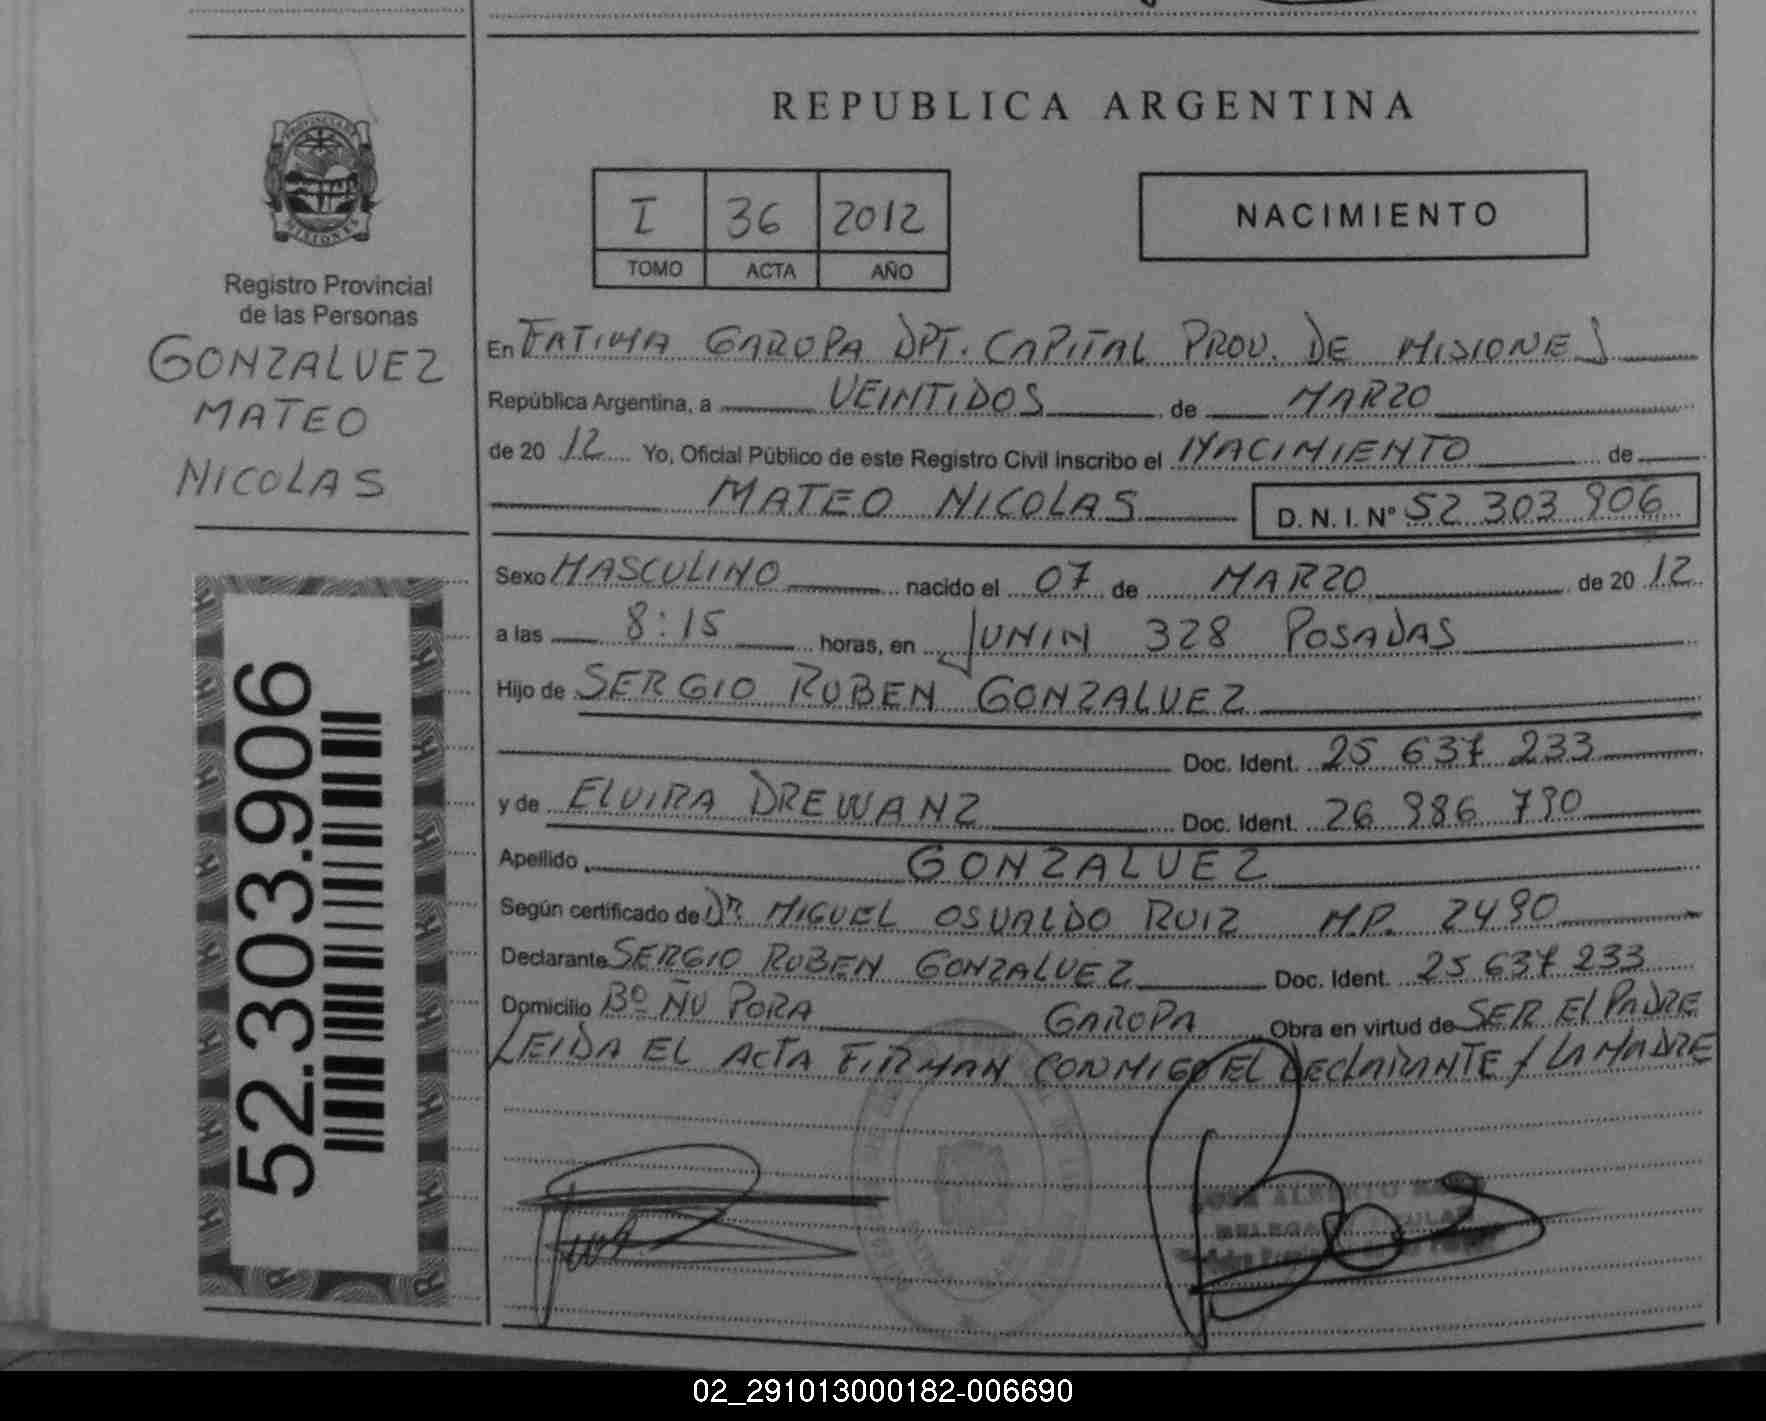 REPUBLICA ARGENTINA
I 36 2012
TOMO ACTA AÑO
NACIMIENTO
PROVINCIA DE
MISIONES
Registro Provincial
de las Personas
GONZALVEZ
MATEO
NICOLAS
52.303.906
En FATIMA GARUPA DPT. CAPITAL PROV. DE MISIONES
República Argentina, a VEINTIDOS de MARZO
de 20 12 Yo, Oficial Público de este Registro Civil inscribo el NACIMIENTO de
MATEO NICOLAS D. N. I. N° 52 303 906
Sexo MASCULINO nacido el 07 de MARZO de 20 12
a las 8:15 horas, en JUNIN 328 POSADAS
Hijo de SERGIO RUBEN GONZALVEZ
Doc. Ident. 25 637 233
y de ELVIRA DREWANZ Doc. Ident. 26 986 790
Apellido GONZALVEZ
Según certificado de DR. MIGUEL OSVALDO RUIZ M.P. 2490
Declarante SERGIO RUBEN GONZALVEZ Doc. Ident. 25 637 233
Domicilio Bº ÑU PORA GARUPA Obra en virtud de SER EL PADRE
LEIDA EL ACTA FIRMAN CONMIGO EL DECLARANTE Y LA MADRE
JOSE ALBERTO
DELEGADO TITULAR
02_291013000182-006690